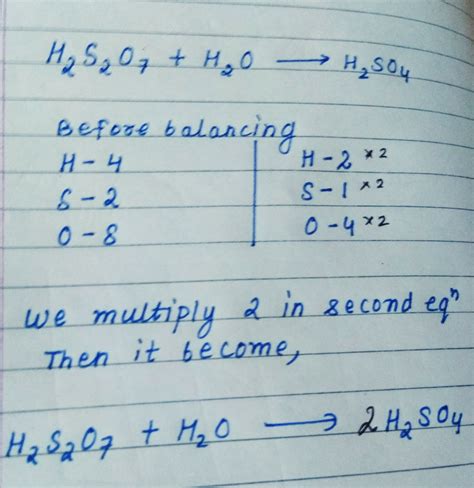 H₂S₂O₇ + H₂O ⟶ H₂SO₄
Before balancing
H - 4 H - 2 ×2
S - 2 S - 1 ×2
O - 8 O - 4 ×2
We multiply 2 in second eqⁿ
Then it become,
H₂S₂O₇ + H₂O ⟶ 2H₂SO₄